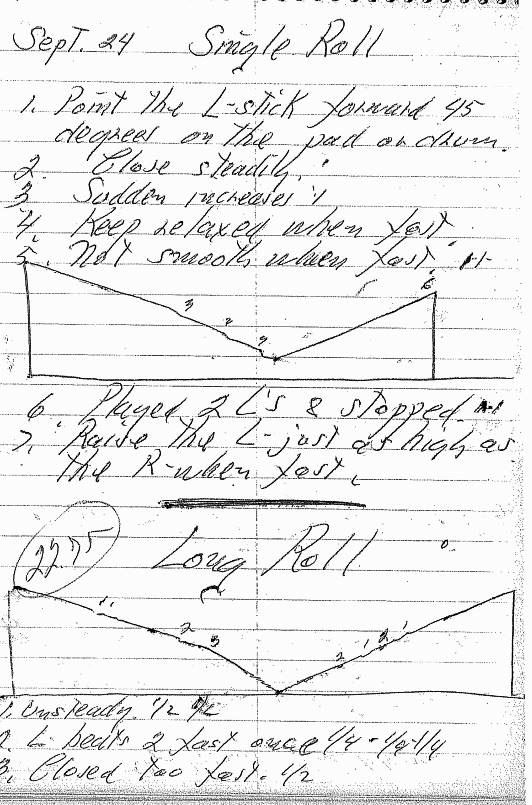 Sept. 24 Single Roll
1. Point the L-stick forward 45
degrees on the pad or drum.
2. Close steadily.
3 Sudden increases 1
4. Keep relaxed when fast.
5. Not smooth when fast. 1-1
6
3
2
4
6. Played 2 L's & stopped 1-1
7. Raise the L-just as high as
the R-when fast.
22.75 Long Roll
1. 2 3 2 1 2 1
1. Unsteady. 1/2
2. L beats 2 fast once 1/4 - 1/2-1/4
3. Closed too fast. 1/2